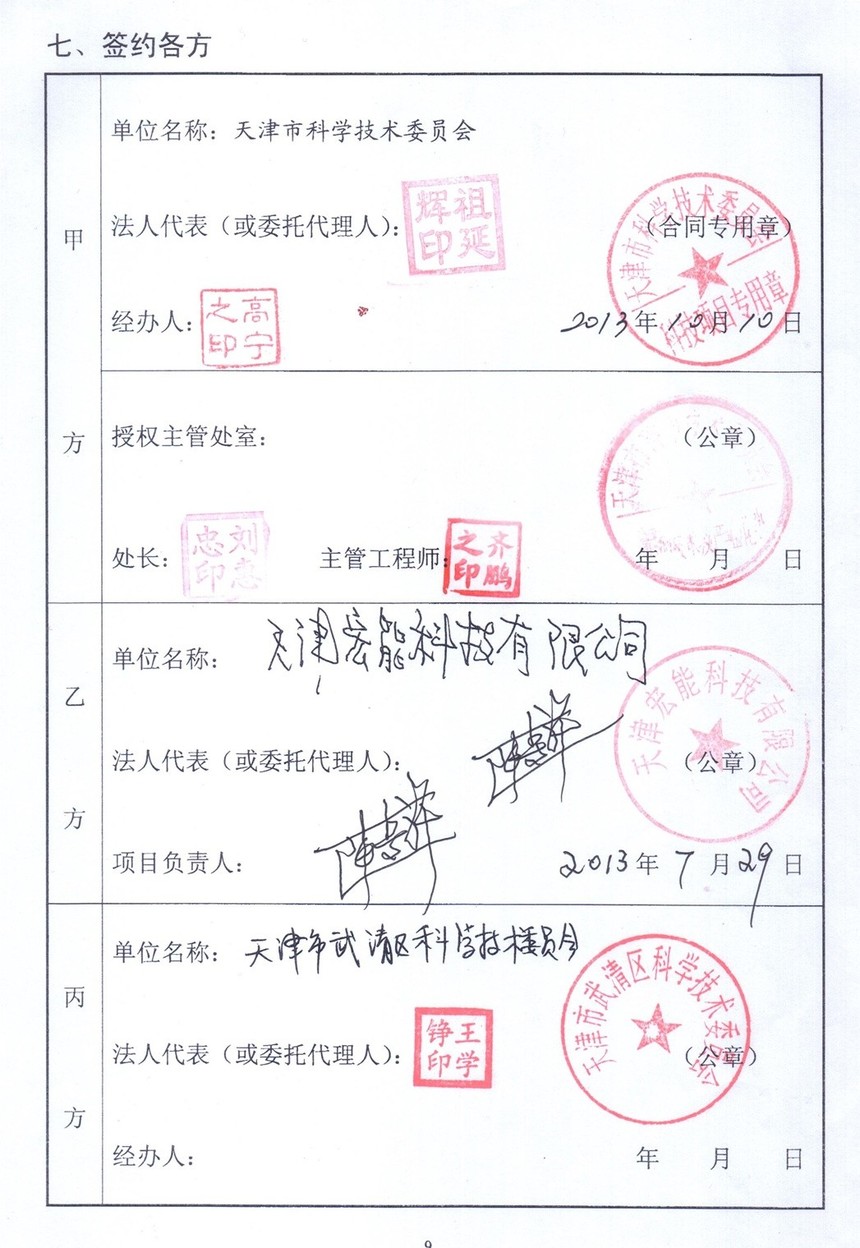 七、签约各方
甲方
单位名称：天津市科学技术委员会
法人代表（或委托代理人）：
祖延辉印
（合同专用章）
天津市科学技术委员会
科技项目专用章
经办人：
高宁之印
2013年10月10日
授权主管处室：
（公章）
处长：
刘忠忠印
主管工程师：
齐鹏之印
年 月 日
乙方
单位名称：天津宏能科技有限公司
法人代表（或委托代理人）：
（公章）
天津宏能科技有限公司
项目负责人：
2013年7月29日
丙方
单位名称：天津市武清区科学技术委员会
法人代表（或委托代理人）：
王学铮印
（公章）
天津市武清区科学技术委员会
经办人：
年 月 日
9